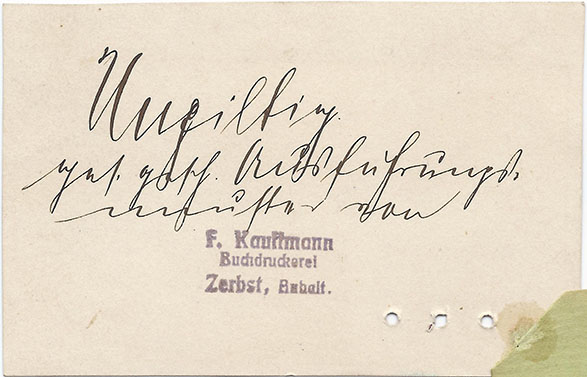 Ungiltig.
ges. gesch. Ausführungs-
muster von
F. Kauffmann
Buchdruckerei
Zerbst, Anhalt.